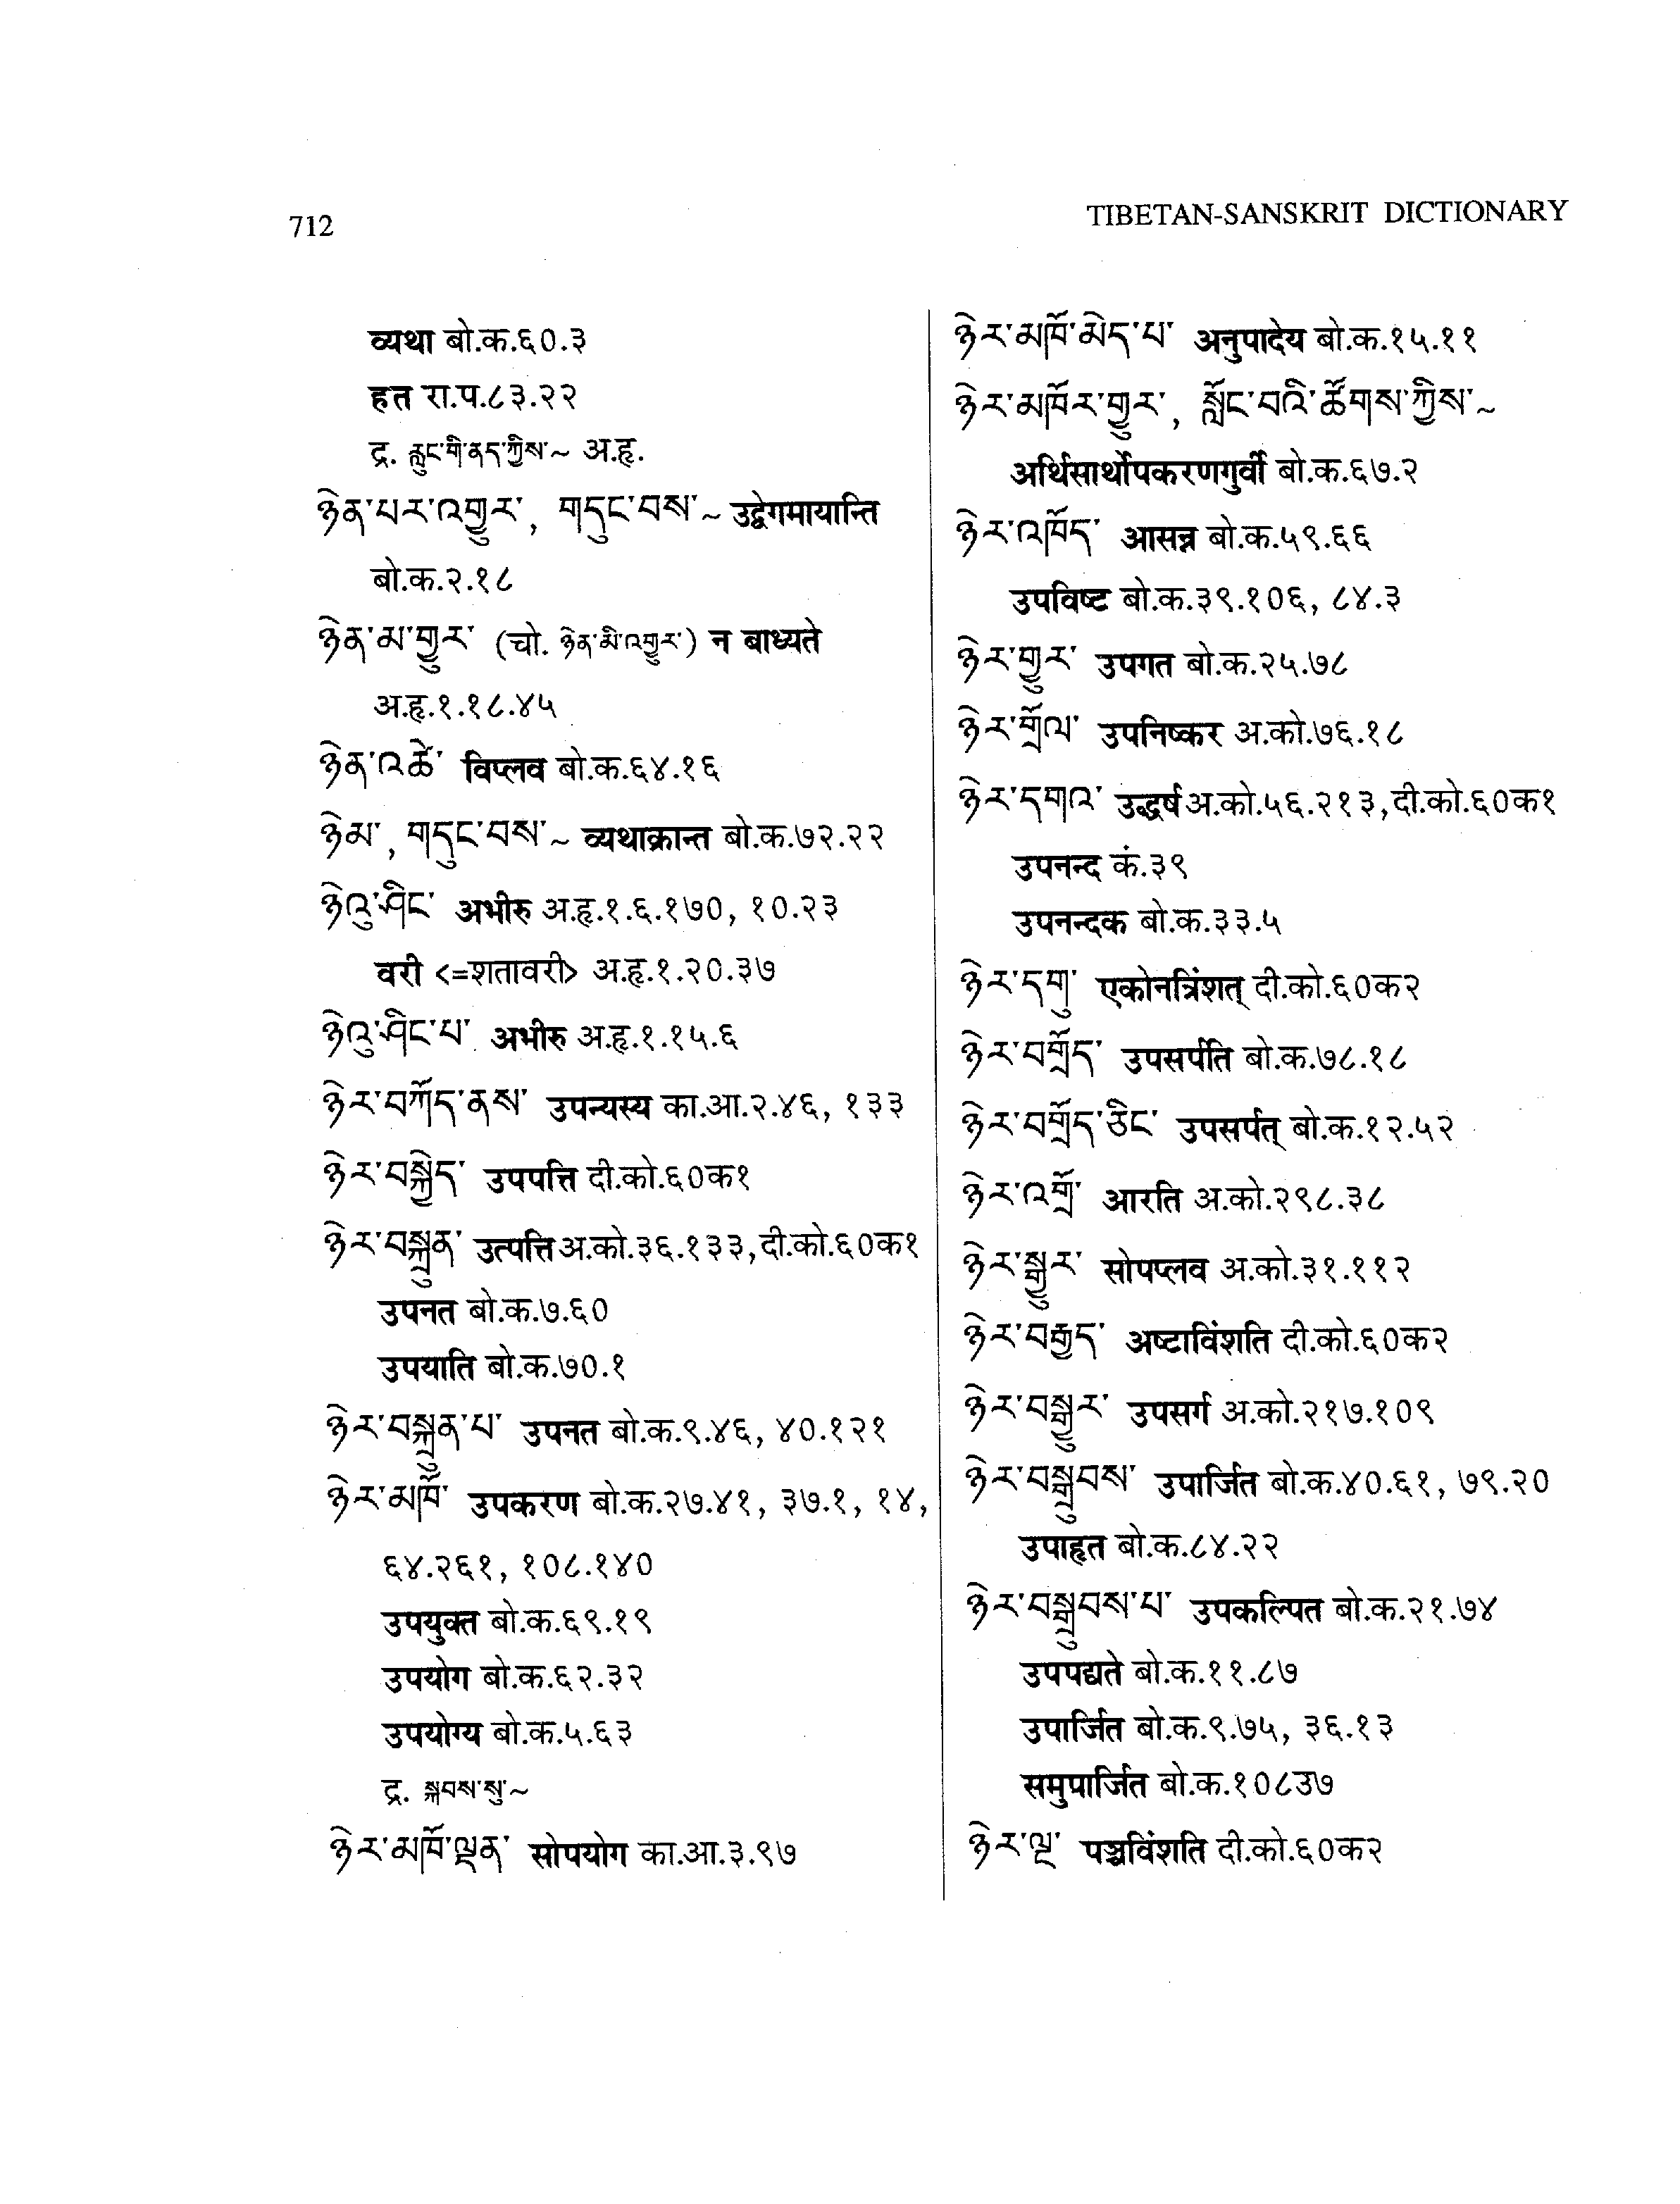 712
TIBETAN-SANSKRIT DICTIONARY
व्यथा बो.क.६०.३
हत रा.प.८३.२२
द्र. རླུང་གི་ནད་ཀྱིས་~ अ.हृ.
ཉེན་པར་འགྱུར་, གདུང་བས་~ उद्वेगमायान्ति
बो.क.२.१८
ཉེན་མ་གྱུར་ (चो. ཉེན་མི་འགྱུར་) न बाध्यते
अ.हृ.१.१८.४५
ཉེན་འཚེ་ विप्लव बो.क.६४.१६
ཉེམ་, གདུང་བས་~ व्यथाक्रान्त बो.क.७२.२२
ཉེའུ་ཤིང་ अभीरु अ.हृ.१.६.१७०, १०.२३
वरी <=शतावरी> अ.हृ.१.२०.३७
ཉེའུ་ཤིང་པ་ अभीरु अ.हृ.१.१५.६
ཉེར་བཀོད་ནས་ उपन्यस्य का.आ.२.४६, १३३
ཉེར་བསྐྱེད་ उपपत्ति दी.को.६०क१
ཉེར་བསྐྲུན་ उत्पत्ति अ.को.३६.१३३,दी.को.६०क१
उपनत बो.क.७.६०
उपयाति बो.क.७०.१
ཉེར་བསྐྲུན་པ་ उपनत बो.क.९.४६, ४०.१२१
ཉེར་མཁོ་ उपकरण बो.क.२७.४१, ३७.१, १४,
६४.२६१, १०८.१४०
उपयुक्त बो.क.६९.१९
उपयोग बो.क.६२.३२
उपयोग्य बो.क.५.६३
द्र. སྐབས་སུ་~
ཉེར་མཁོ་ལྡན་ सोपयोग का.आ.३.९७
ཉེར་མཁོ་མེད་པ་ अनुपादेय बो.क.१५.११
ཉེར་མཁོར་གྱུར་, སློང་བའི་ཚོགས་ཀྱིས་~
अर्थिसार्थोपकरणगुर्वी बो.क.६७.२
ཉེར་འཁོད་ आसन्न बो.क.५९.६६
उपविष्ट बो.क.३९.१०६, ८४.३
ཉེར་གྱུར་ उपगत बो.क.२५.७८
ཉེར་གྲོལ་ उपनिष्कर अ.को.७६.१८
ཉེར་དགའ་ उद्धर्ष अ.को.५६.२१३,दी.को.६०क१
उपनन्द कं.३९
उपनन्दक बो.क.३३.५
ཉེར་དགུ་ एकोनत्रिंशत् दी.को.६०क२
ཉེར་བགྲོད་ उपसर्पति बो.क.७८.१८
ཉེར་བགྲོད་ཅིང་ उपसर्पत् बो.क.१२.५२
ཉེར་འགྲོ་ आरति अ.को.२९८.३८
ཉེར་སྒྱུར་ सोपप्लव अ.को.३१.११२
ཉེར་བརྒྱད་ अष्टाविंशति दी.को.६०क२
ཉེར་བསྒྱུར་ उपसर्ग अ.को.२१७.१०९
ཉེར་བསྒྲུབས་ उपार्जित बो.क.४०.६१, ७९.२०
उपाहृत बो.क.८४.२२
ཉེར་བསྒྲུབས་པ་ उपकल्पित बो.क.२१.७४
उपपद्यते बो.क.११.८७
उपार्जित बो.क.९.७५, ३६.१३
समुपार्जित बो.क.१०८उ७
ཉེར་ལྔ་ पञ्चविंशति दी.को.६०क२